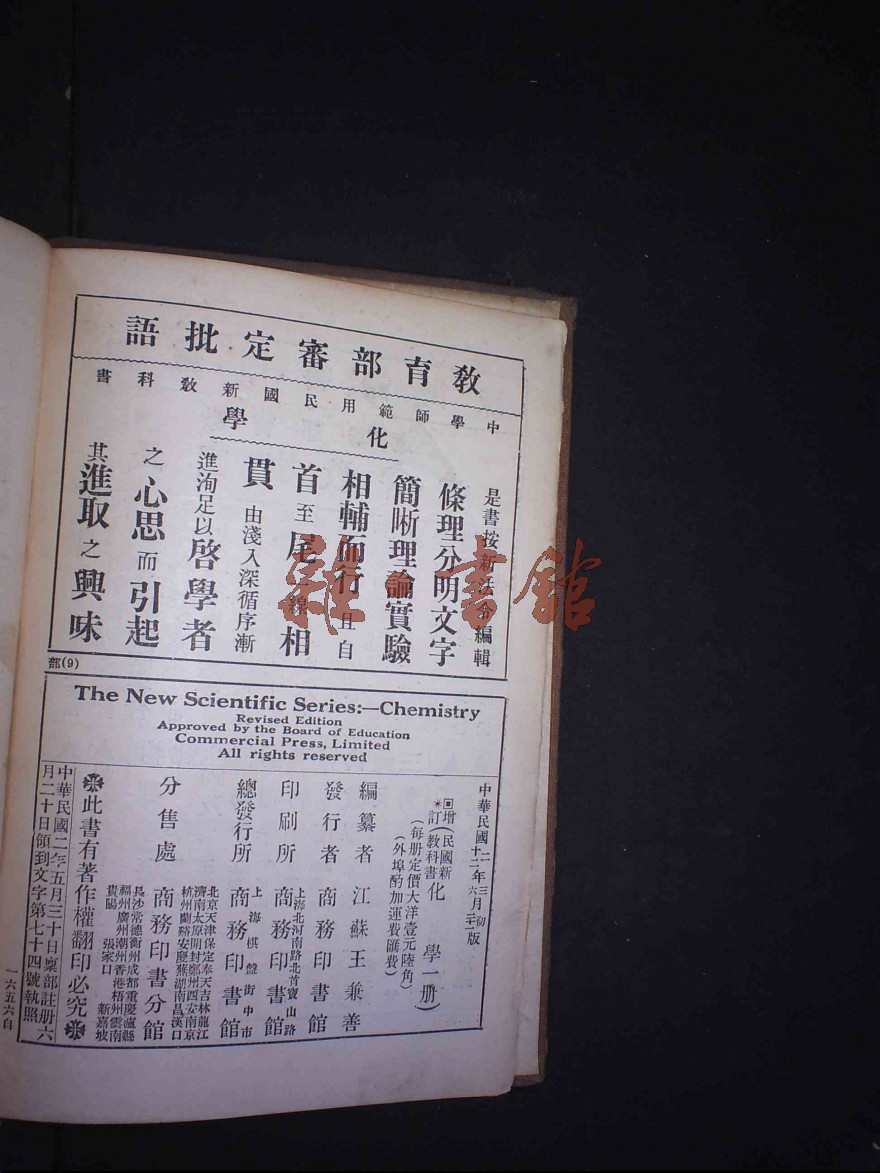 教育部審定批語
中學師範用民國新教科書
化學
是書按新法編輯
條理分明文字
簡晰理論實驗
相輔而行且自
首至尾一線相
貫由淺入深循序漸
進洵足以啓學者
之心思而引起
其進取之興味
部(9)
The New Scientific Series:—Chemistry
Revised Edition
Approved by the Board of Education
Commercial Press, Limited
All rights reserved
中華民國
二年三月初版
十二年六月二十一版
增訂(民國新教科書)化學一册)
(每册定價大洋壹元陸角)
(外埠酌加運費匯費)
編纂者 江蘇王兼善
發行者 商務印書館
印刷所 上海北河南路北首寶山路 商務印書館
總發行所 上海棋盤街中市 商務印書館
分售處 商務印書分館
北京天津保定奉天吉林龍江
濟南太原開封鄭州西安南京
杭州蘭谿安慶蕪湖南昌漢口
長沙常德衡州成都重慶瀘縣
福州廣州潮州香港梧州雲南
貴陽 張家口 新嘉坡
此書有著作權翻印必究
中華民國二年五月三十日稟部註册六
月二十日領到文字第七十四號執照
一六五六自
雜書館